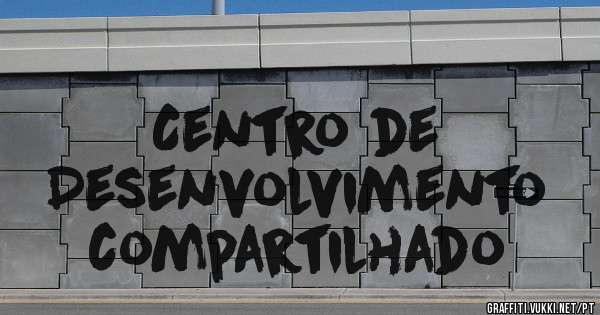 CENTRO DE
DESENVOLVIMENTO
COMPARTILHADO
GRAFFITI.VUKKI.NET/PT